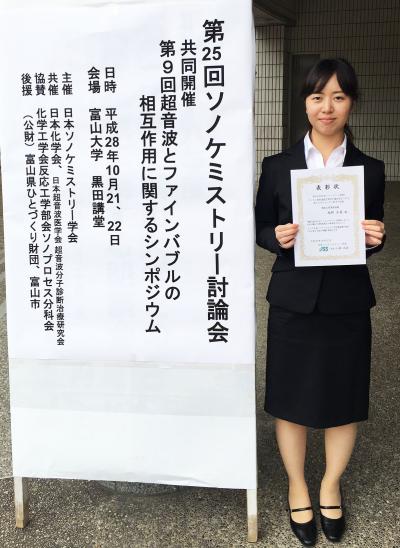 第25回ソノケミストリー討論会
共同開催
第９回超音波とファインバブルの
相互作用に関するシンポジウム
日時　平成28年10月21、22日
会場　富山大学　黒田講堂
主催　日本ソノケミストリー学会
共催　日本化学会、日本超音波医学会 超音波分子診断治療研究会
協賛　化学工学会反応工学部会ソノプロセス分科会
後援　（公財）富山県ひとづくり財団、富山市
表彰状